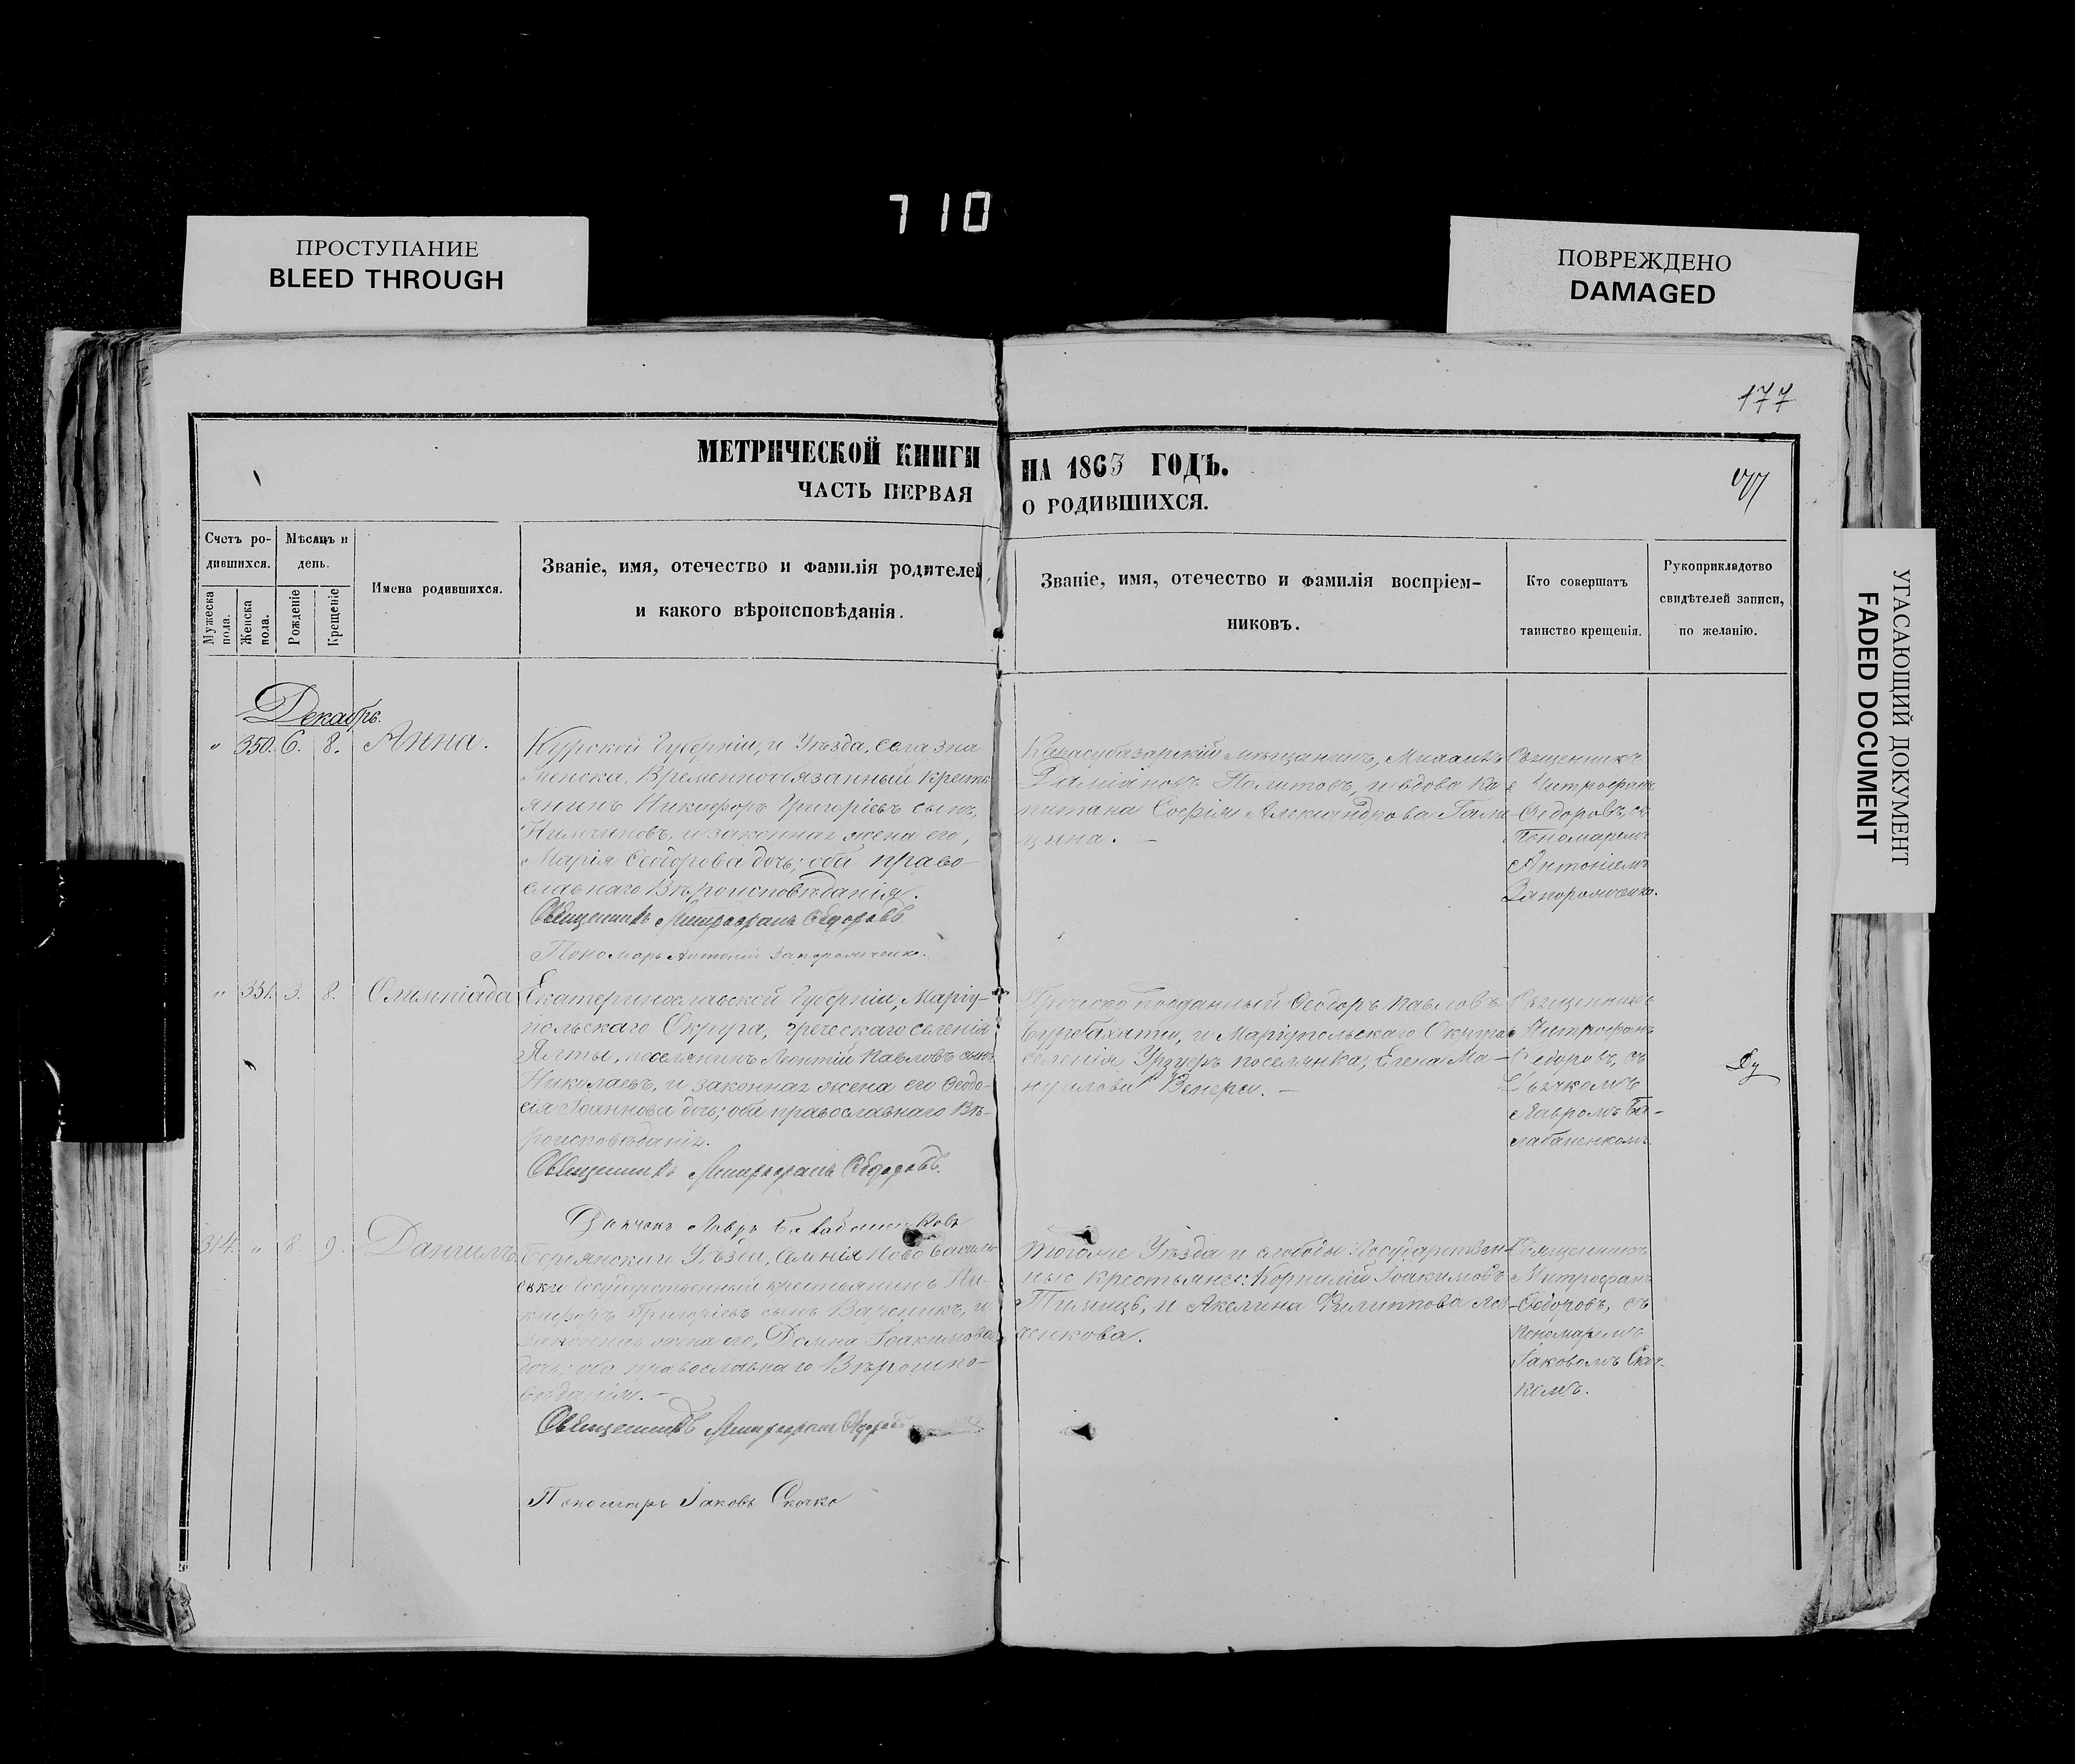 710
ПРОСТУПАНИЕ
BLEED THROUGH
ПОВРЕЖДЕНО
DAMAGED
УГАСАЮЩИЙ ДОКУМЕНТ
FADED DOCUMENT
177
МЕТРИЧЕСКОЙ КНИГИ НА 1863 ГОДЪ.
ЧАСТЬ ПЕРВАЯ О РОДИВШИХСЯ.
Счетъ ро-
дившихся.
Мужеска пола.
Женска пола.
Мѣсяцъ и
день.
Рожденіе
Крещеніе
Имена родившихся.
Званіе, имя, отечество и фамилія родителей
и какого вѣроисповѣданія.
Званіе, имя, отечество и фамилія воспріем-
никовъ.
Кто совершатъ
таинство крещенія.
Рукоприкладство
свидѣтелей записи,
по желанію.
Декабрь.
" 350. 6. 8. Анна.
Курской Губерніи, и Уѣзда, села Зна
менска, Временнообязанный крестья
янинъ Никифоръ Григорьевъ сынъ,
и законная жена его,
Марія Ѳеодорова дочь; оба право-
славнаго Вѣроисповѣданія.
Священникъ Митрофанъ Ѳедоровъ
Пономарь Антоній Запорожченко.
Карасубазарскій мѣщанинъ, Михаилъ
Даміановъ Политовъ, и вдова Ка
питана Софія Александрова Гали
цина. —
Священникъ
Митрофанъ
Ѳедоровъ, съ
Пономаремъ
Антоніемъ
Запорожченко.
" 351. 3. 8. Олимпіада
Екатеринославской Губерніи, Маріу-
польскаго Округа, греческаго селенія
Ялты, поселянинъ Леонтій Павловъ сынъ
Николаевъ, и законная жена его Ѳеодо-
сія Іоаннова дочь; оба православнаго Вѣ-
роисповѣданія.
Священникъ Митрофанъ Ѳедоровъ.
Дьячекъ Лавръ
Греческо подданный Ѳеодоръ Павловъ
и Маріупольскаго Округа
селенія Урзуфъ поселянка, Елена Ма-
нуилова Венгери. —
Священникъ
Митрофанъ
Ѳедоровъ, съ
Дьячкомъ
Лавромъ Ба-
лабаненкомъ.
314. " 8. 9. Даніилъ.
Бердянскаго Уѣзда, селенія Ново Василь-
евки Государственный крестьянинъ Ни-
кифоръ Григорьевъ сынъ и
законная жена его, Домна Іоакимова
дочь; оба православнаго Вѣроиспо-
вѣданія. —
Священникъ Митрофанъ Ѳедоровъ
Пономарь Іаковъ Скочко
Тогоже Уѣзда и слободы Государствен-
ные крестьяне: Корнилій Іоакимовъ
и Акелина Филиппова
Священникъ
Митрофанъ
Ѳедоровъ, съ
Пономаремъ
Іаковомъ Скоч-
комъ.